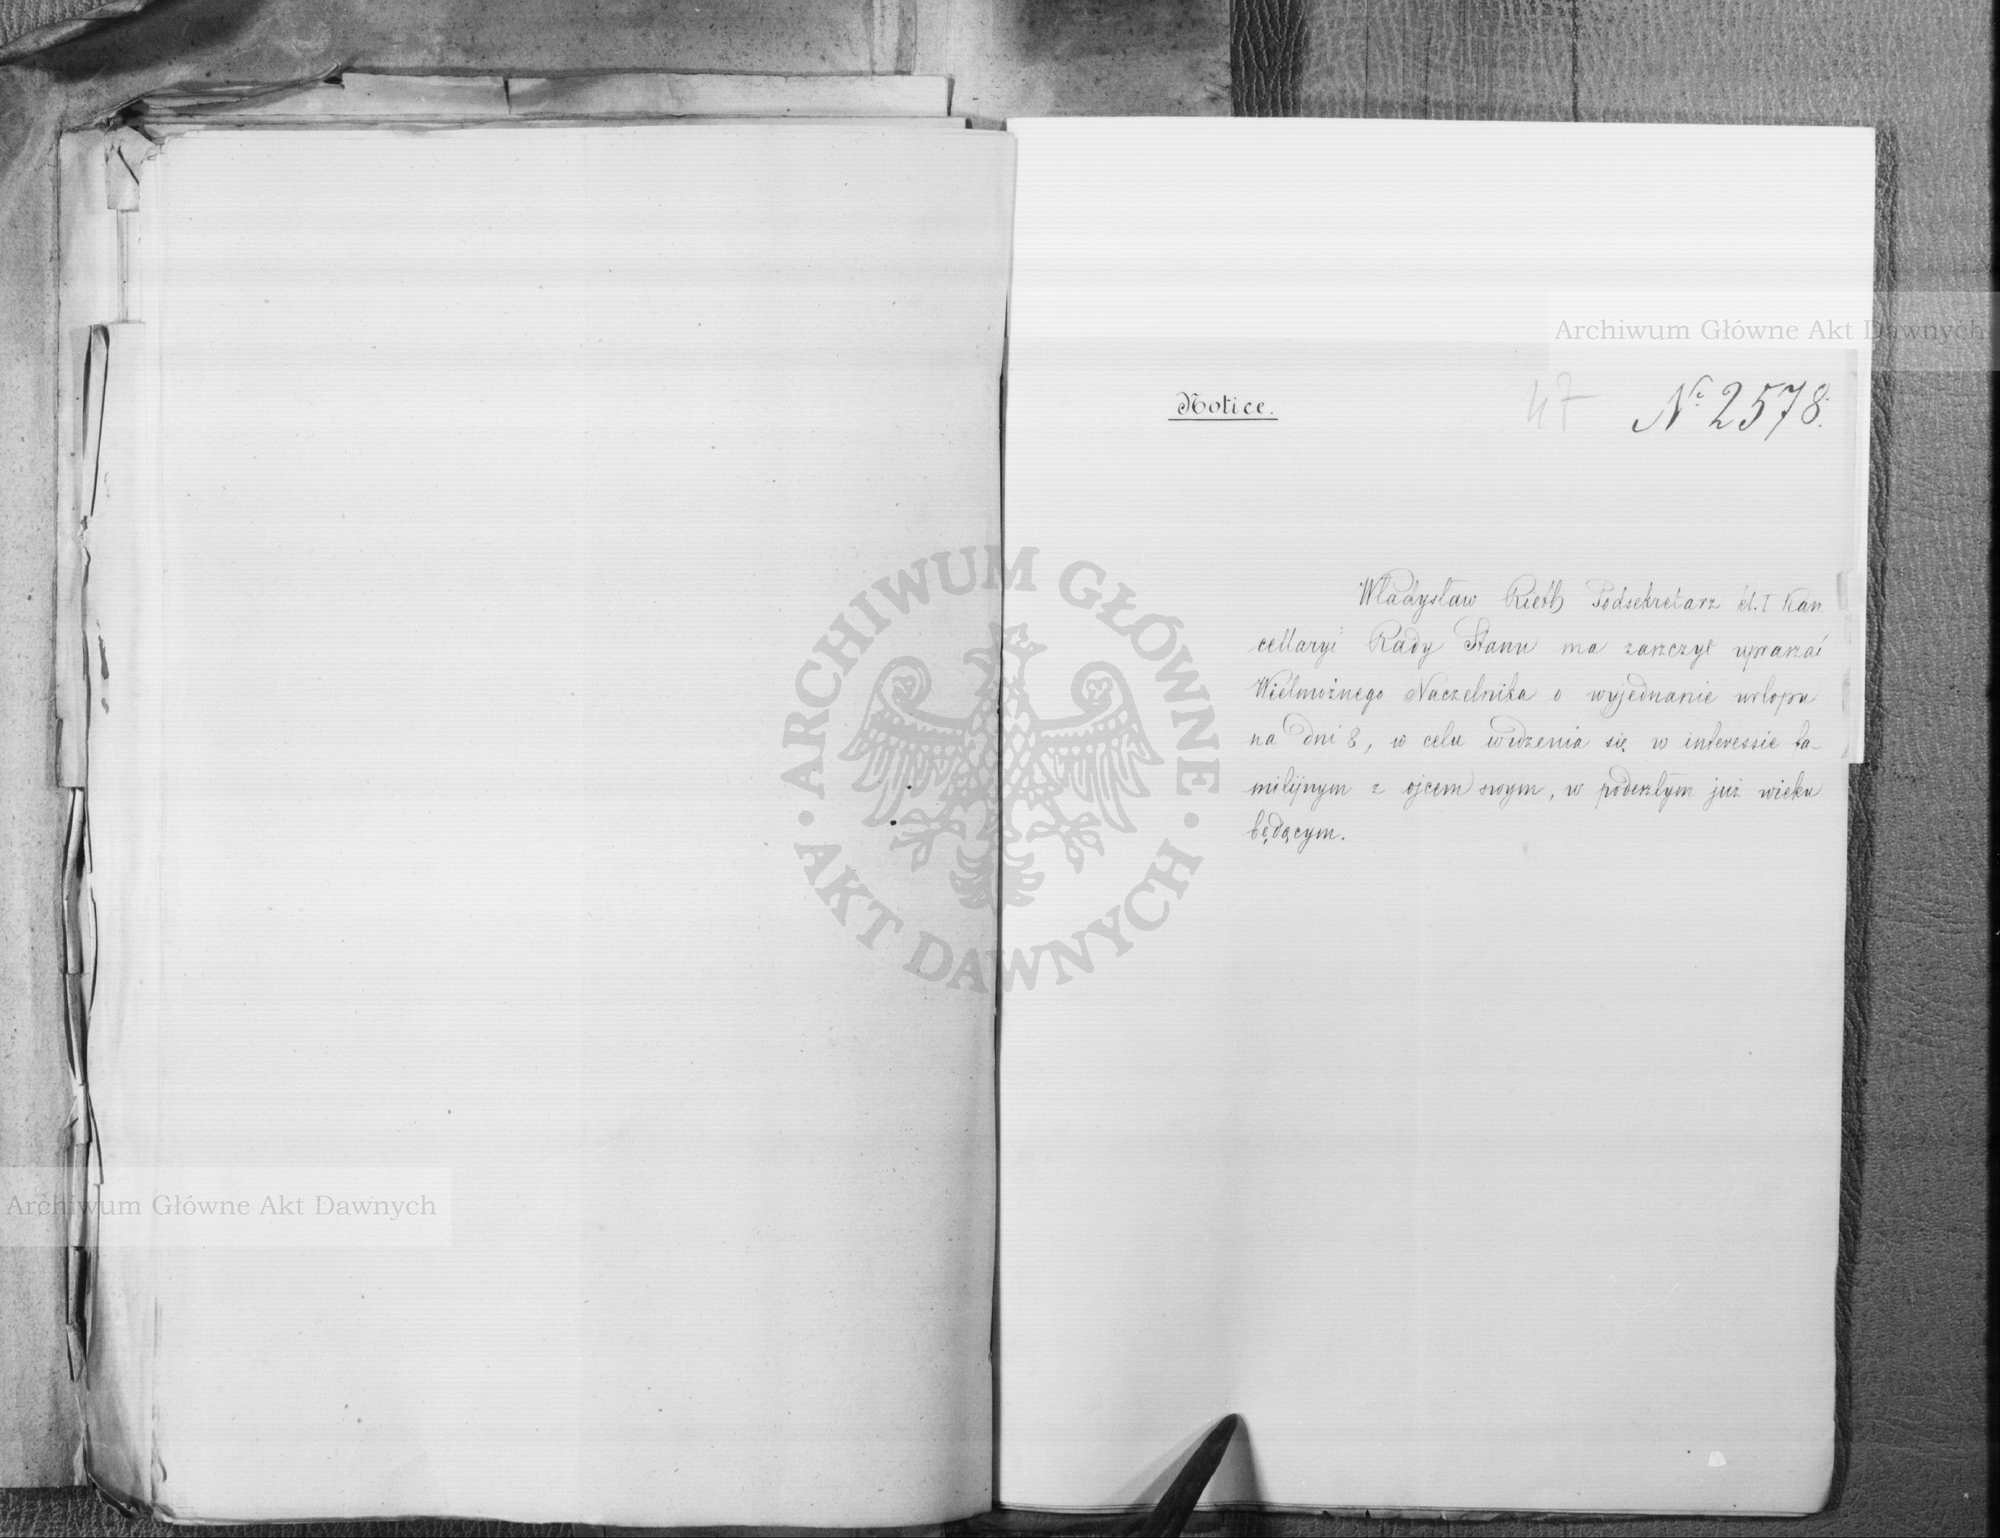 Notice.
47
Nr 2578.
Władysław Rieth Podsekretarz kl. I Kan
cellaryi Rady Stanu ma zaszczyt upraszać
Wielmożnego Naczelnika o wyjednanie urlopu
na dni 8, w celu widzenia się w interessie fa-
milijnym z ojcem swym, w podeszłym już wieku
będącym.
Archiwum Główne Akt Dawnych
Archiwum Główne Akt Dawnych
ARCHIWUM GŁÓWNE · AKT DAWNYCH ·